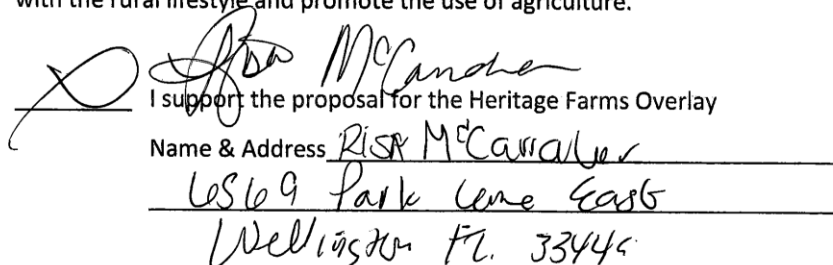 with the rural lifestyle and promote the use of agriculture.
I support the proposal for the Heritage Farms Overlay
Name & Address Risa
6569 Park Lane East
Wellington FL. 3344